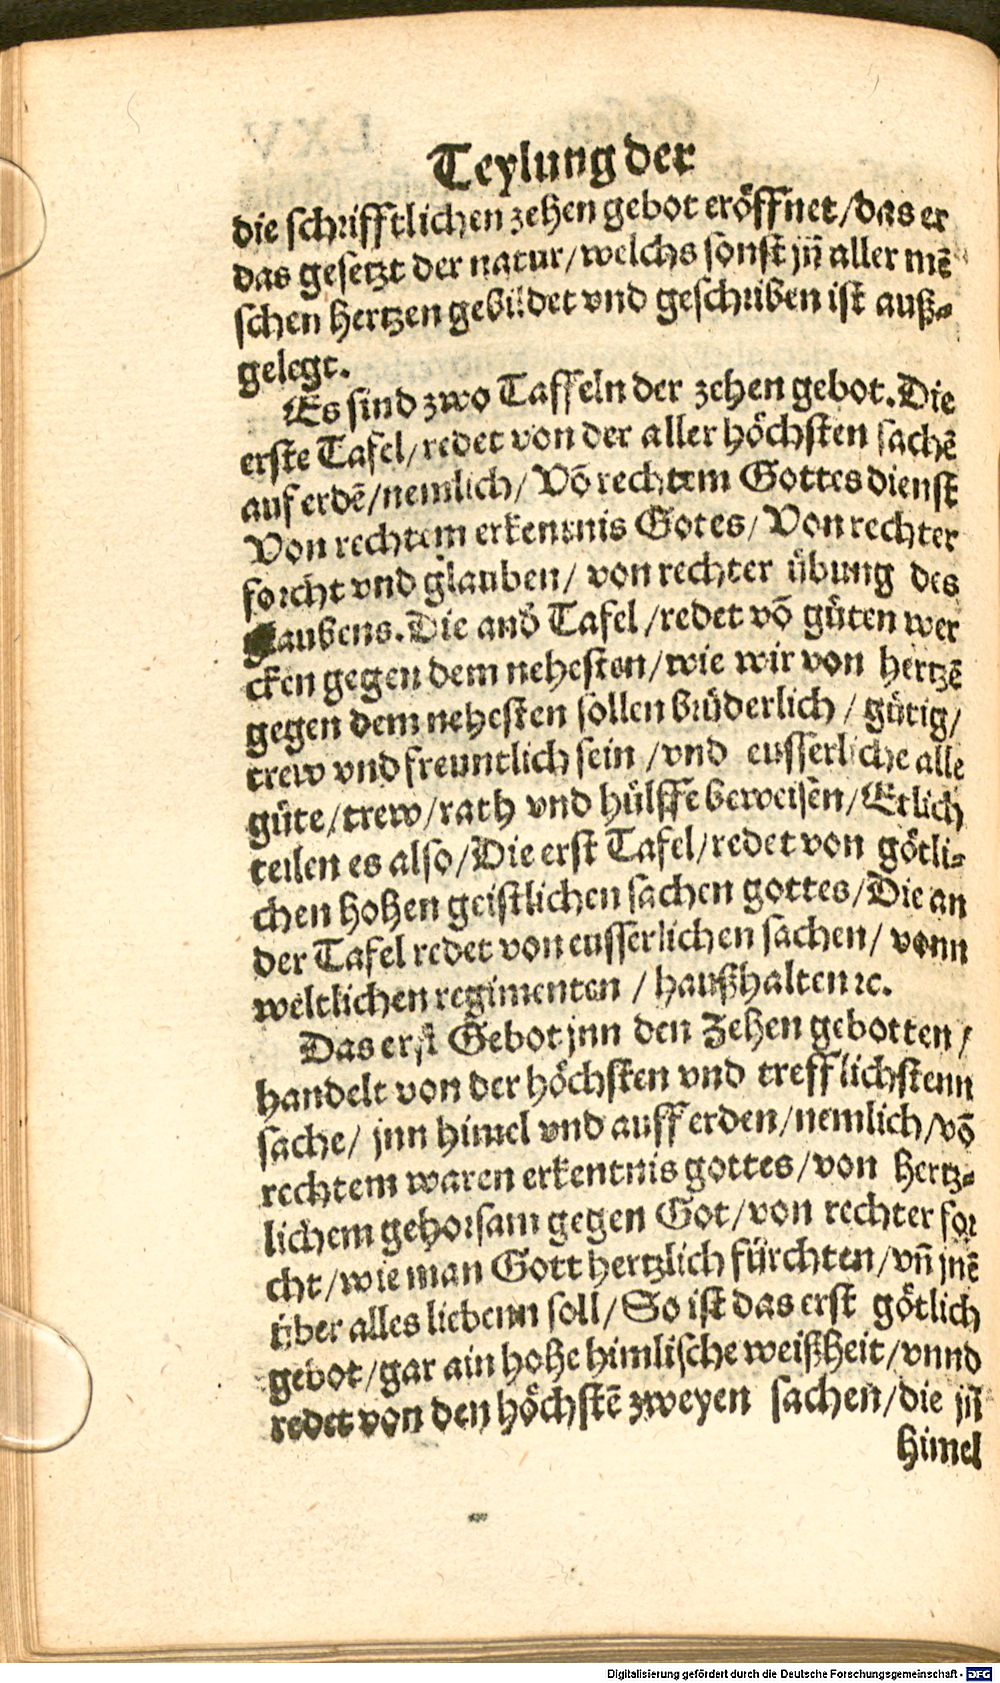 Teylung der
die schrifftlichen zehen gebot eröffnet/das er
das gesetzt der natur/welchs sonst jñ aller mē
schen hertzen gebildet vnd geschriben ist auß⸗
gelegt.
Es sind zwo Taffeln der zehen gebot. Die
erste Tafel/redet von der aller höchsten sachē
auf erdē/nemlich/Vō rechtem Gottes dienst
Von rechtem erkentnis Gotes/Von rechter
forcht vnd glauben/von rechter übung des
glaubens. Die and̄ Tafel/redet vō güten wer
cken gegen dem nehesten/wie wir von hertzē
gegen dem nehesten sollen brüderlich/gütig/
trew vnd freuntlich sein/vnd eusserliche alle
güte/trew/rath vnd hülffe beweisen/Etlich
teilen es also/Die erst Tafel/redet von götli⸗
chen hohen geistlichen sachen gottes/Die an
der Tafel redet von eusserlichen sachen/vonn
weltlichen regimenten/haußhalten ꝛc.
Das erst Gebot jnn den Zehen gebotten/
handelt von der höchsten vnd trefflichstenn
sache/jnn himel vnd auff erden/nemlich/vō
rechtem waren erkentnis gottes/von hertz⸗
lichem gehorsam gegen Got/von rechter for
cht/wie man Gott hertzlich fürchten/vñ jnē
über alles liebenn soll/So ist das erst götlich
gebot/gar ain hohe himlische weißheit/vnnd
redet von den höchstē zweyen sachen/die jñ
himel
Digitalisierung gefördert durch die Deutsche Forschungsgemeinschaft - DFG